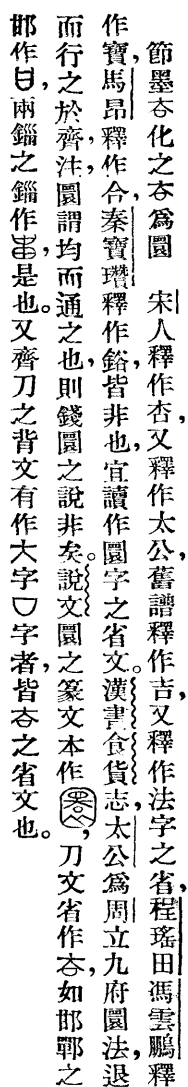 節墨㕣化之㕣爲圜　宋人釋作杏，又釋作太公，舊譜釋作吉，又釋作法字之省，程瑤田馮雲鵬釋
作寶，馬昂釋作合，秦寶瓚釋作鎔，皆非也，宜讀作圜字之省文。漢書食貨志，太公爲周立九府圜法，退
而行之於齊，注，圜謂均而通之也，則錢圜之說非矣。說文圜之篆文本作，刀文省作㕣，如邯鄲之
邯作甘，兩錙之錙作，是也。又齊刀之背文有作大字口字者，皆㕣之省文也。